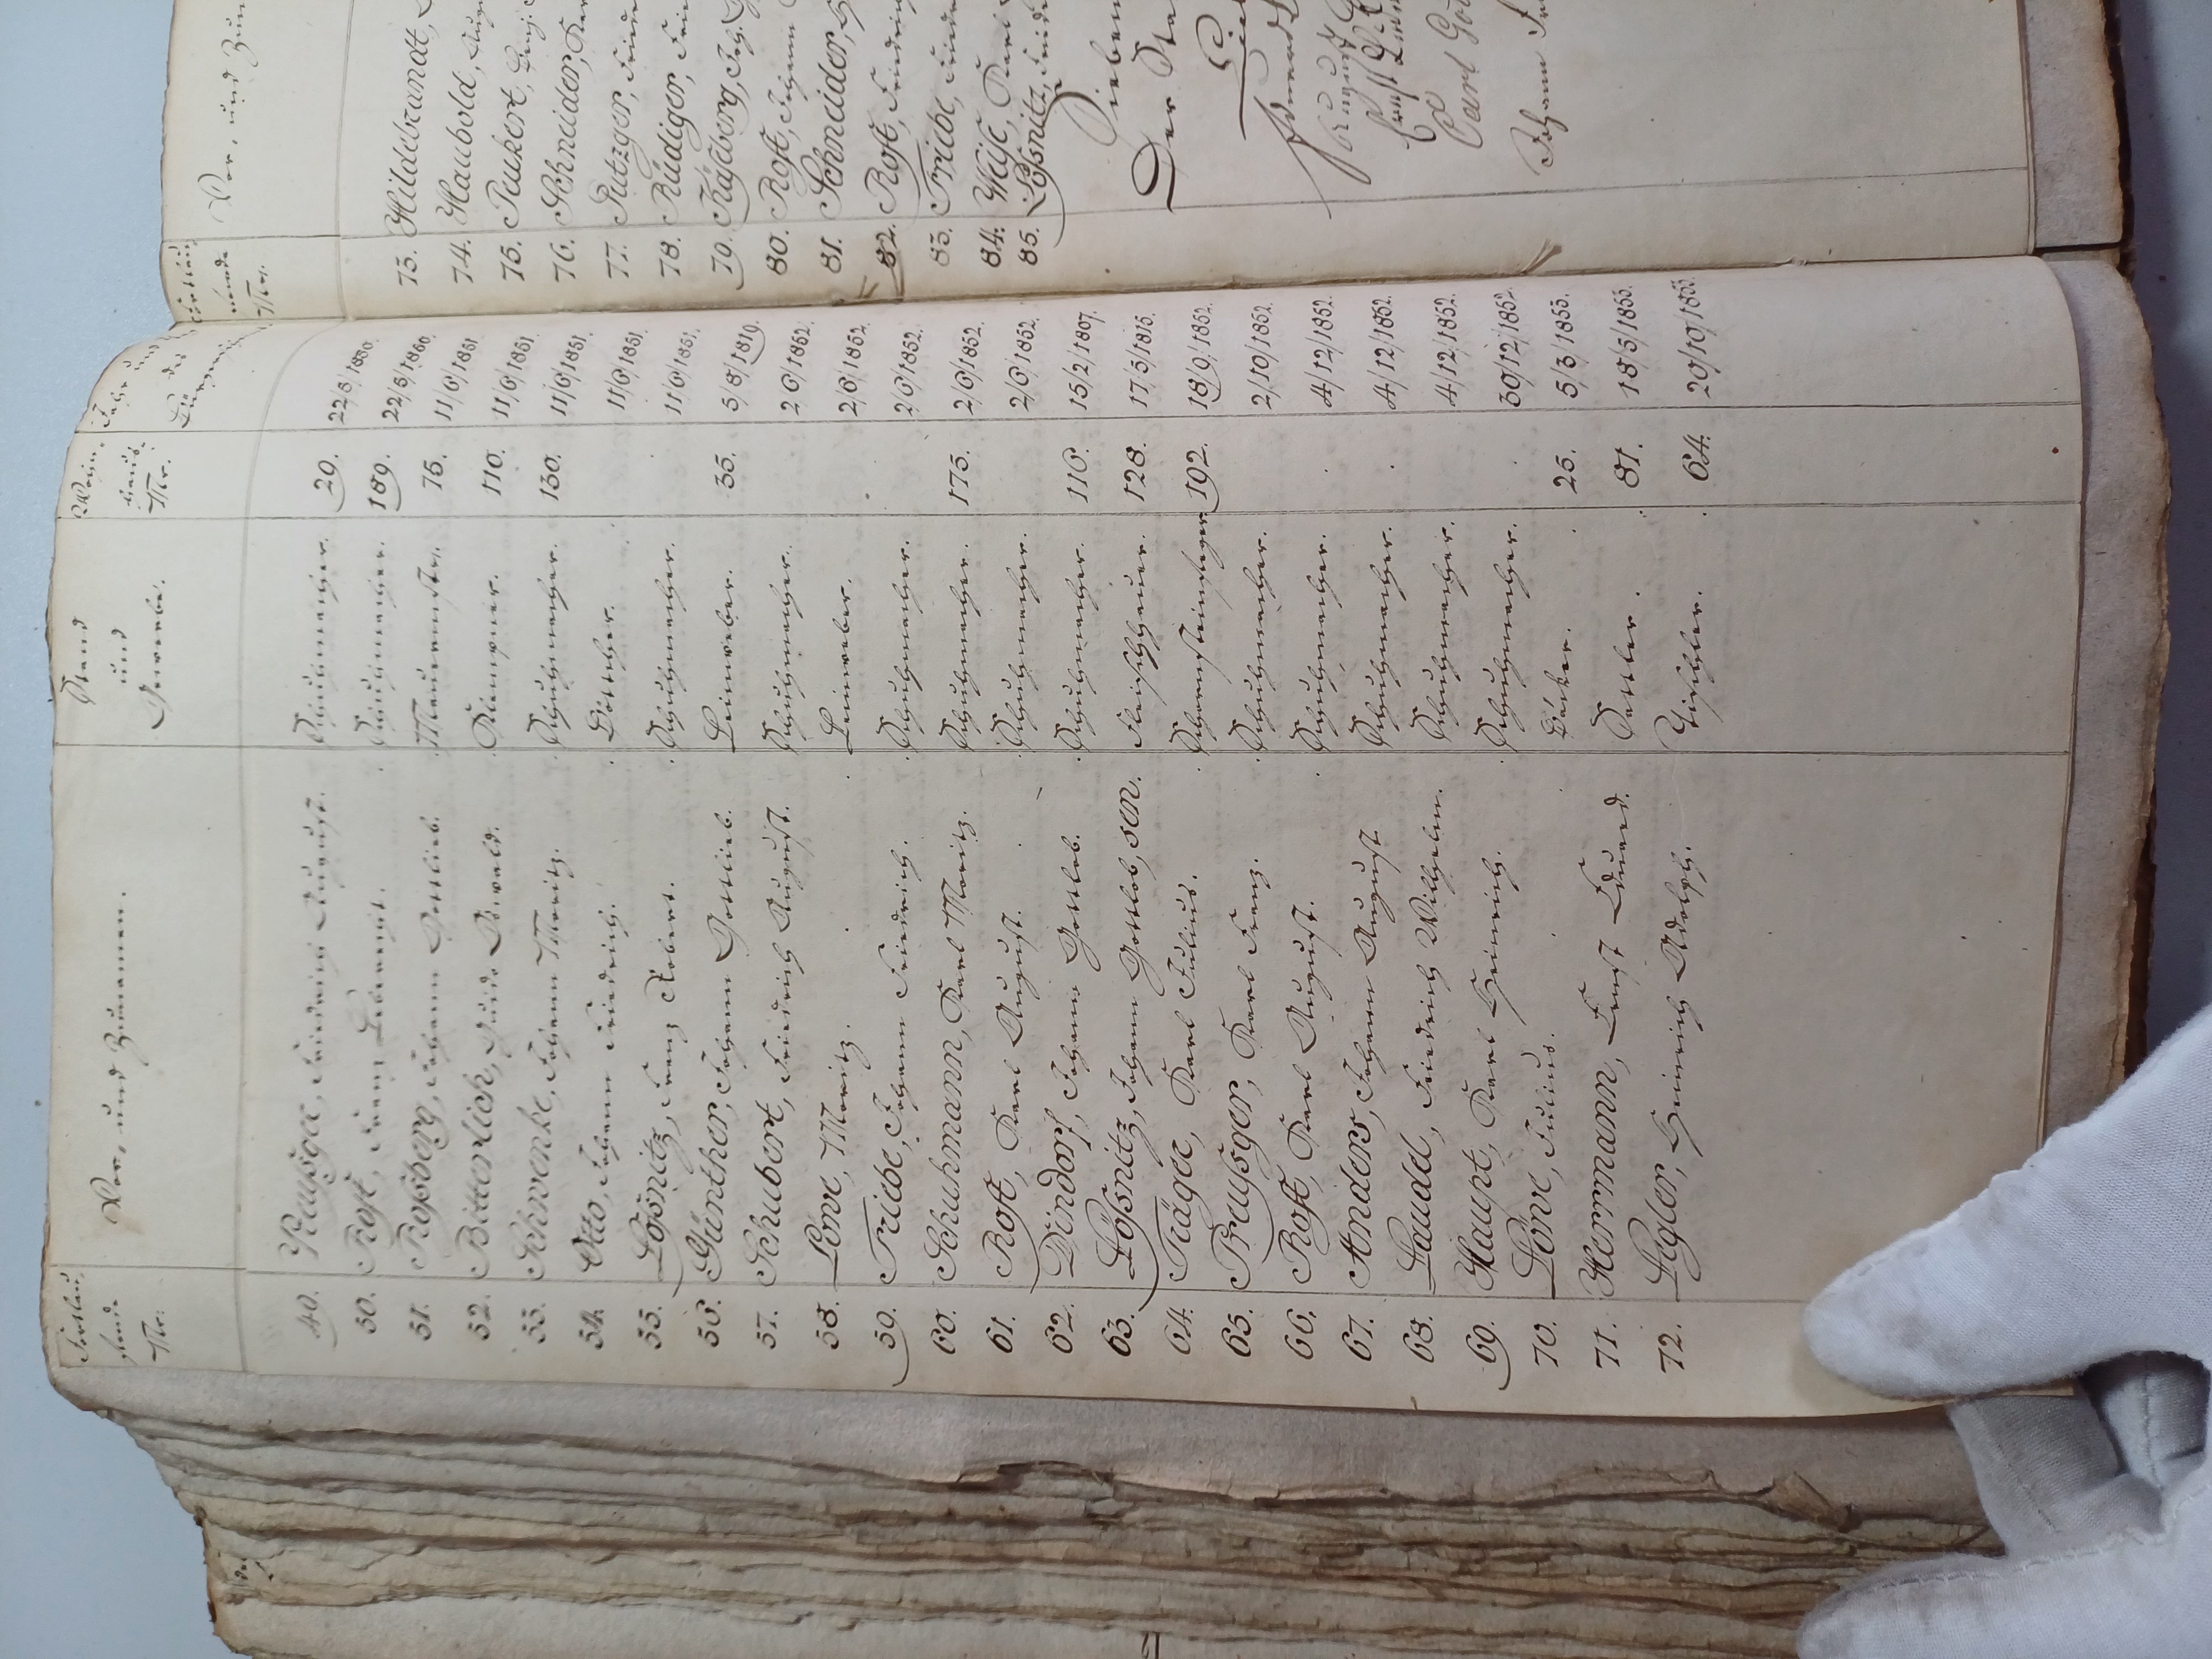 Fortlau
fende
Nr.
Vor, und Zunamen.
Stand
und
Gewerbe.
Wohn,
haus,
Nr.
Jahr und
des
49. Friedrich August. Schuhmacher. 29. 22/5/1850.
50. Rost, Franz Leberecht. Schuhmacher. 189. 22/5/1850.
51. Roßberg, Johann Gottlieb. 75. 11/6/1851.
52. Bitterlich, Guido Oswald. Klempner. 110. 11/6/1851.
53. Schwenke, Johann Moritz. Schuhmacher. 130. 11/6/1851.
54. Otto, Johann Friedrich. Böttcher. 11/6/1851.
55. Lößnitz, Franz Robert. Schuhmacher. 11/6/1851.
56. Günther, Johann Gottlieb. Leinweber. 35. 5/8/1819.
57. Schubert, Friedrich August. Schuhmacher. 2/6/1852.
58. Löwe, Moritz. Leinweber. 2/6/1852.
59. Triebe, Johann Friedrich. Schuhmacher. 2/6/1852.
60. Schuhmann, Karl Moritz. Schuhmacher. 175. 2/6/1852.
61. Rost, Karl August. Schuhmacher. 2/6/1852.
62. Dindorf, Johann Gottlob. Schuhmacher. 116. 15/2/1807.
63. Lößnitz, Johann Gottlob, sen. Fleischhauer. 128. 17/5/1815.
64. Trägee, Karl Julius. Schornsteinfeger. 192. 18/9/1852.
65. Braußger, Karl Franz. Schuhmacher. 2/10/1852.
66. Rost, Karl August. Schuhmacher. 4/12/1852.
67. Anders, Johann August Schuhmacher. 4/12/1852.
68. Laudel, Friedrich Wilhelm. Schuhmacher. 4/12/1852.
69. Haupt, Karl Heinrich. Schuhmacher. 30/12/1852.
70. Löwe, Julius. Bäcker. 25. 5/3/1853.
71. Herrmann, Ernst Eduard. Sattler. 81. 18/5/1853.
72. Legler, Heinrich Adolph. Tischler. 64. 20/10/185
Nr.
Vor, und Zun
73. Hildebrandt,
74. Haubold, Aug
75. Paukert,
76. Schneider, Kar
77. Rutzger, Fried
78. Rüdiger,
79. Roßberg, Joh.
80. Rost, Johann
81. Schneider,
82. Rost, Friedrich
83. Triebe, Friede
84. Weise, Karl
85. Lößnitz, Friede
Sieben
Der Sta
August
Ernst
Carl Got
Johann